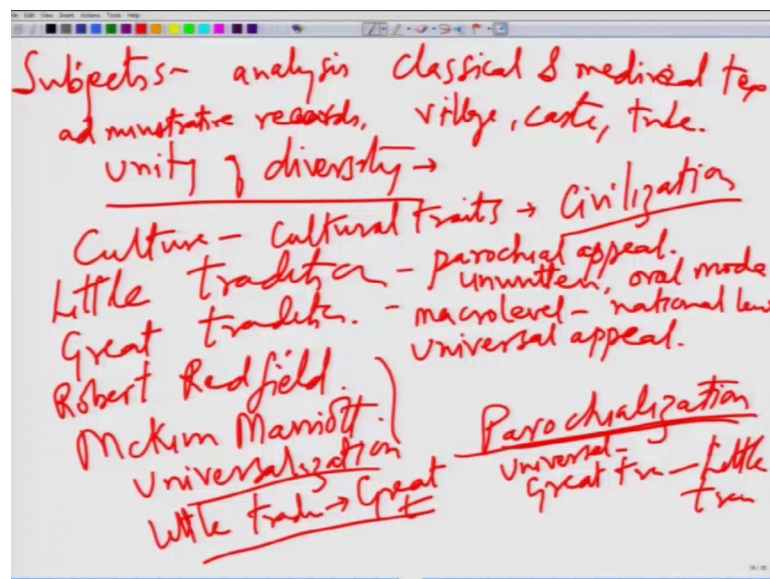 File Edit View Insert Actions Tools Help
Subjects - analysis classical & medieval tex
administrative records, village, caste, tribe.
unity of diversity →
Culture - Cultural traits → Civilization
Little tradition - parochial appeal.
unwritten, oral mode
Great tradition. - macrolevel - national lev
universal appeal.
Robert Redfield.
McKim Marriott.
Universalization
little tradn → Great t
Parochialization
Universal -
Great tra - Little
tran